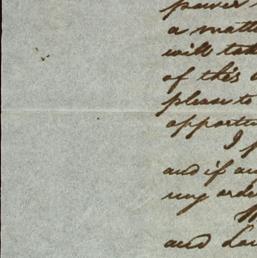 power
a matte
will tak
of this
please to
opportu
I f
and if an
my orde
and